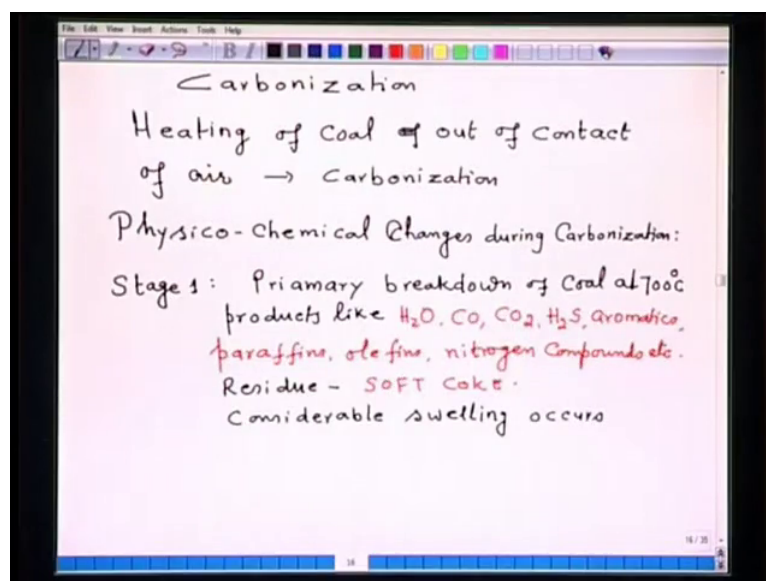 File Edit View Insert Actions Tools Help
B I
Carbonization
Heating of Coal of out of Contact
of air → Carbonization
Physico-Chemical Changes during Carbonization:
Stage 1: Priamary breakdown of Coal at 700°C
products like H₂O, CO, CO₂, H₂S, aromatics,
paraffins, olefins, nitrogen Compounds etc.
Residue - SOFT Coke.
Considerable swelling occurs
16 / 35
16